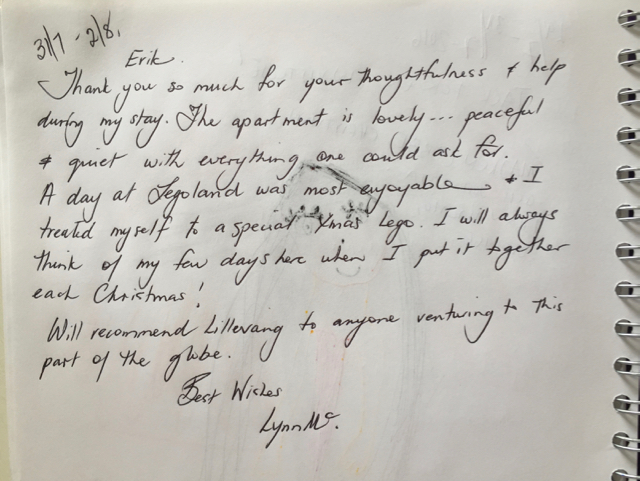 31/7 - 2/8.
Erik.
Thank you so much for your thoughtfulness & help
during my stay. The apartment is lovely... peaceful
& quiet with everything one could ask for.
A day at Legoland was most enjoyable & I
treated myself to a special Xmas Lego. I will always
think of my few days here when I put it together
each Christmas!
Will recommend Lillevang to anyone venturing to this
part of the globe.
Best Wishes
Lynn Mc.